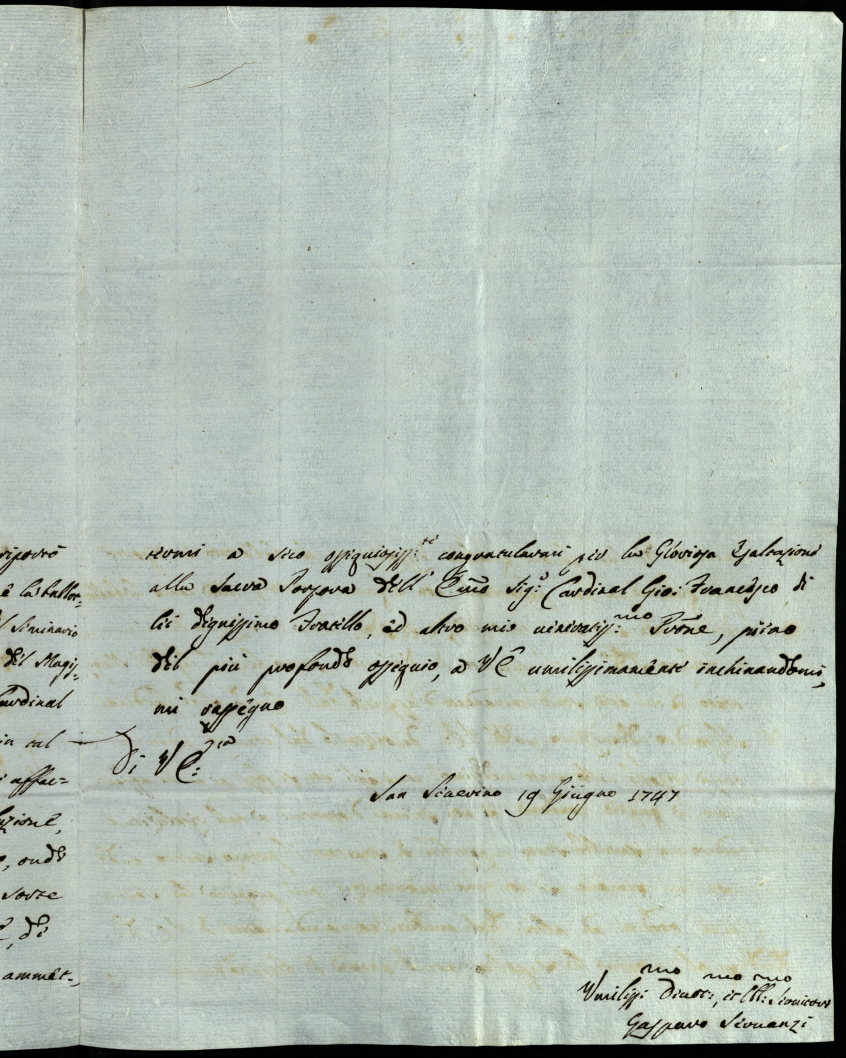 riporrò
è la ballot-
l Seminario
del Magi-
Cardinal
in tal
i affac-
zione,
, onde
forze
, di
ammet-
termi a seco ossequiosiss:te congratularmi per la Gloriosa Esaltazione
alla Sacra Porpora dell' Emo Sig:r Cardinal Gio: Francesco di
lei degnissimo Fratello, ed altro mio veneratiss:mo Prone, pieno
del più profondo ossequio, a VE umilissimamente inchinandomi,
mi rassegno
Di VE:
San Severino 19 Giugno 1747
Umilissmo Divotmo, et Obbl:mo Servitore
Gasparo Servanzi